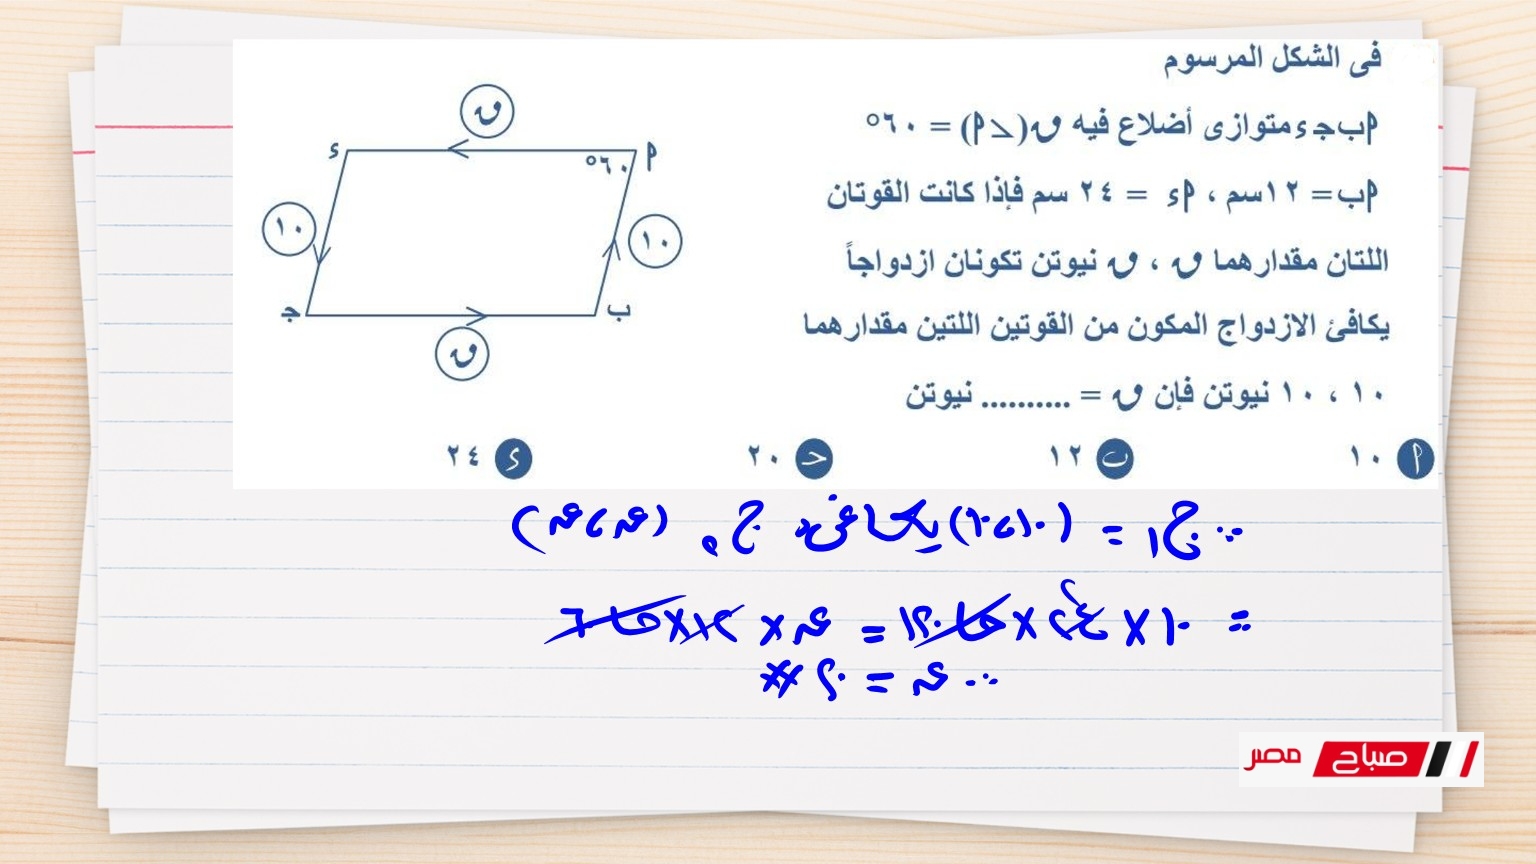 فى الشكل المرسوم
ق
ء
٦٠°
م
١٠
١٠
ج
ب
ق
م ب ج ء متوازى أضلاع فيه ق(∠م) = ٦٠°
م ب = ١٢ سم ، م ء = ٢٤ سم فإذا كانت القوتان
اللتان مقدارهما ق ، ق نيوتن تكونان ازدواجاً
يكافئ الازدواج المكون من القوتين اللتين مقدارهما
١٠ ، ١٠ نيوتن فإن ق = .......... نيوتن
م ١٠
ب ١٢
ح ٢٠
ء ٢٤
∴ ج١ = (١٠،١٠) يكافىء ج٢ (ق،ق)
= ١٠ × ٢٤ × = ق × ١٢ × حا ٦٠
∴ ق = ٢٠ #
صباح مصر